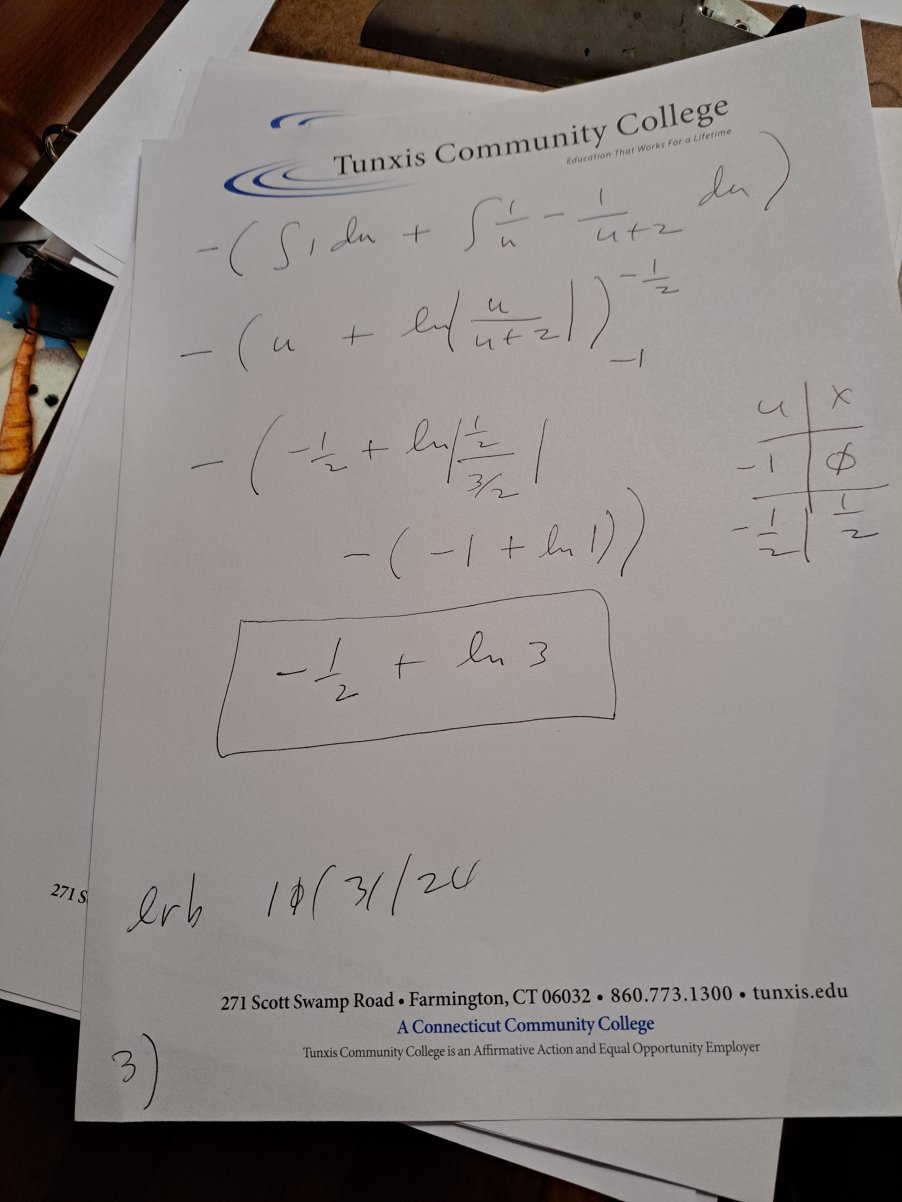 Tunxis Community College
Education That Works For a Lifetime
-(∫1 du + ∫ 1/u - 1/(u+2) du)
-(u + ln|u/(u+2)|) -1/2 -1
u | x
-(-1/2 + ln|(1/2)/(3/2)|
-1 | ϕ
-1/2 | 1/2
-(-1 + ln 1))
-1/2 + ln 3
lrb 1ϕ/31/24
271 S
271 Scott Swamp Road • Farmington, CT 06032 • 860.773.1300 • tunxis.edu
A Connecticut Community College
Tunxis Community College is an Affirmative Action and Equal Opportunity Employer
3)